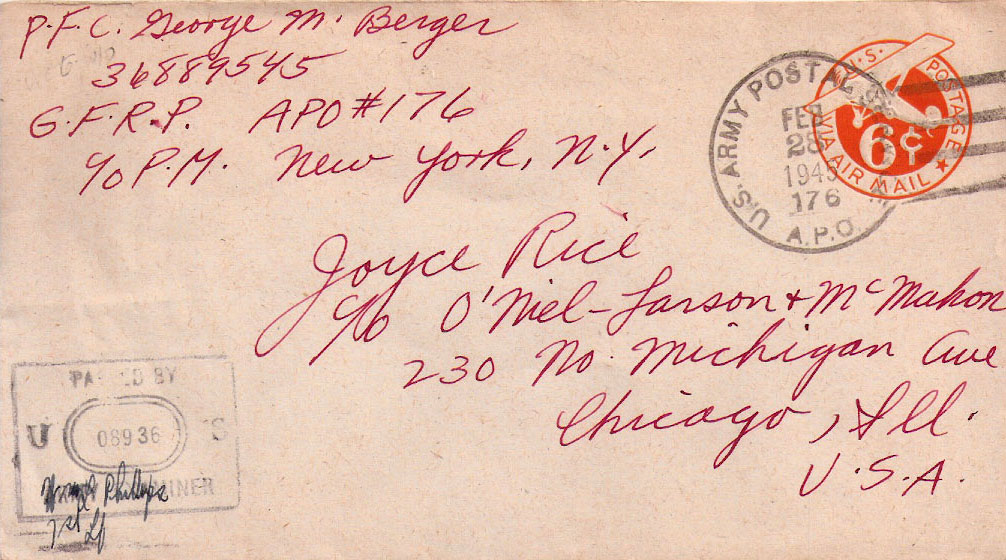 P.F.C. George M. Berger
36889545
G.F.R.P. APO #176
c/o P.M. New York, N.Y.
U.S. ARMY POSTAL
FEB
28
1945
176
A.P.O.
U.S. POSTAGE
6¢
VIA AIR MAIL
Joyce Rice
c/o O'Niel-Larson & McMahon
230 No. Michigan Ave
Chicago, Ill.
U.S.A.
PASSED BY
U 08936 S
MINER
Phillips
1st Lt